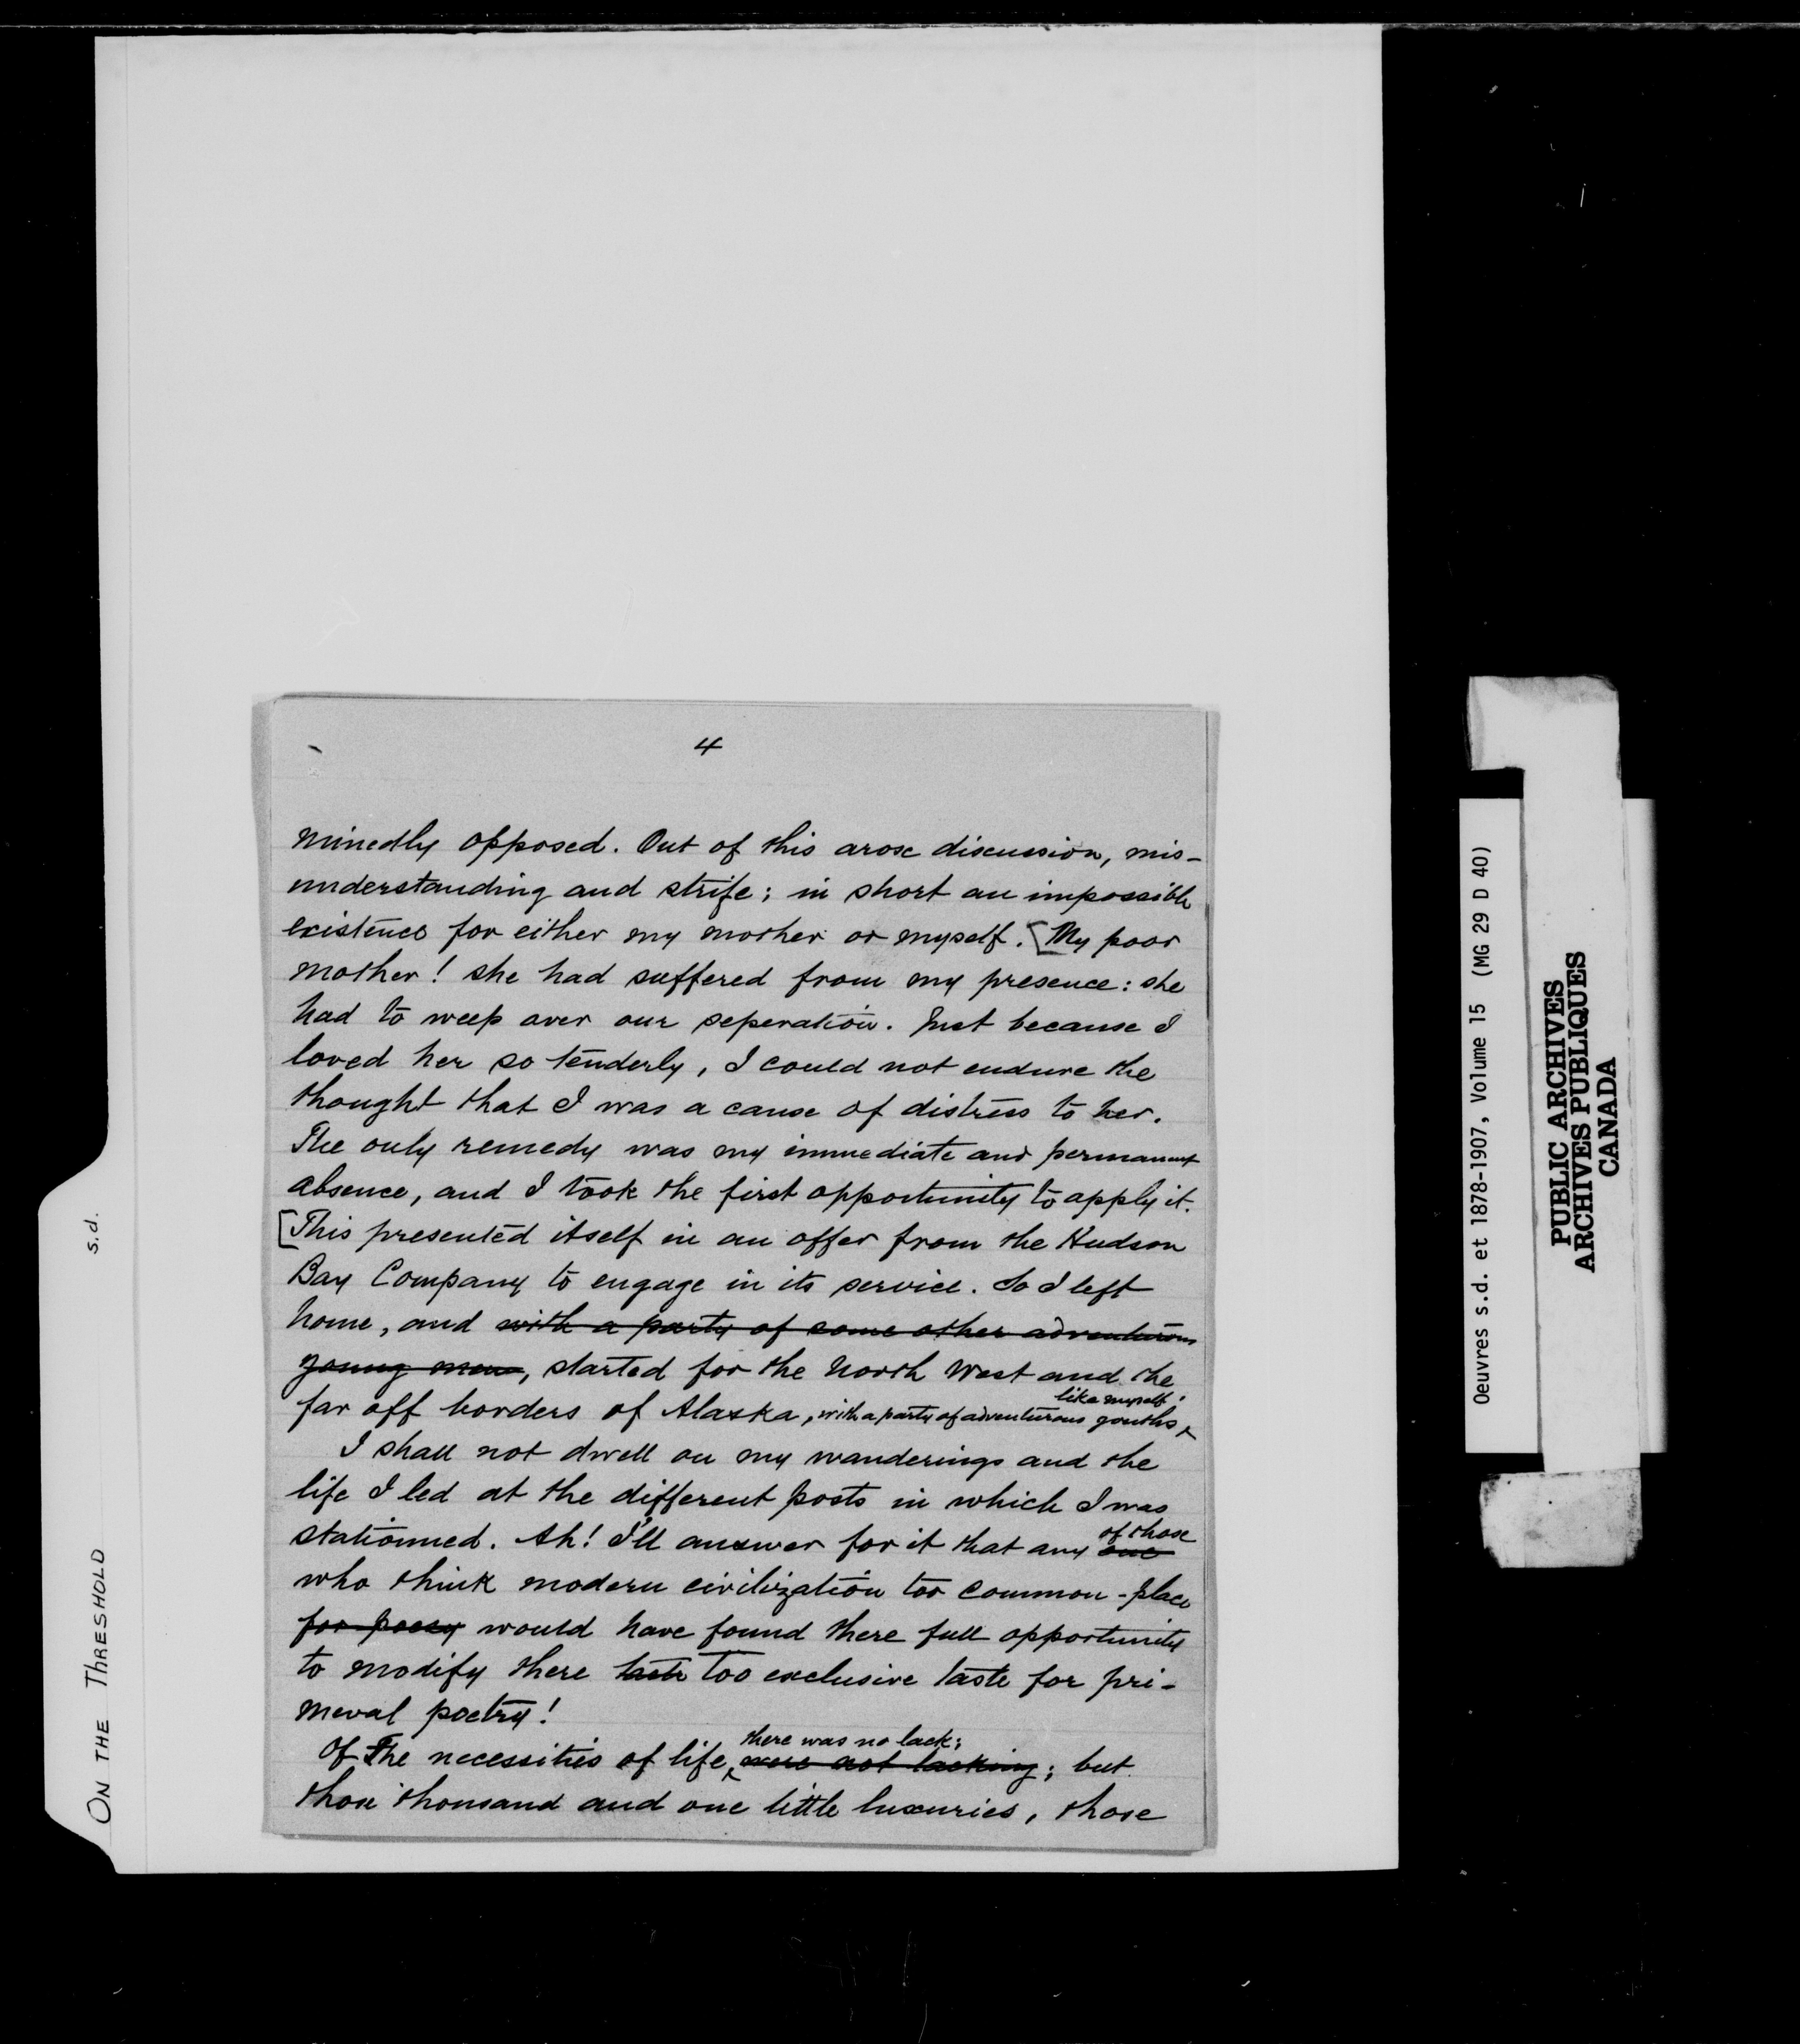 4
minedly opposed. Out of this arose discussion, mis-
understanding and strife; in short an impossible
existence for either my mother or myself. [My poor
mother! she had suffered from my presence: she
had to weep over our seperation. Just because I
loved her so tenderly, I could not endure the
thought that I was a cause of distress to her.
The only remedy was my immediate and permanent
absence, and I took the first opportunity to apply it.
[This presented itself in an offer from the Hudson
Bay Company to engage in its service. So I left
home, and with a party of some other adventurous
young men, started for the North West and the
like myself.
far off borders of Alaska, with a party of adventurous youths
I shall not dwell on my wanderings and the
life I led at the different posts in which I was
of those
stationned. Ah! I'll answer for it that any one
who think modern civilization too common-place
for poesy would have found there full opportunity
to modify there taste too exclusive taste for pri-
meval poetry!
there was no lack;
Of The necessities of life, were not lacking; but
those thousand and one little luxuries, those
ON THE THRESHOLD s.d.
Oeuvres s.d. et 1878-1907, Volume 15 (MG 29 D 40)
PUBLIC ARCHIVES
ARCHIVES PUBLIQUES
CANADA